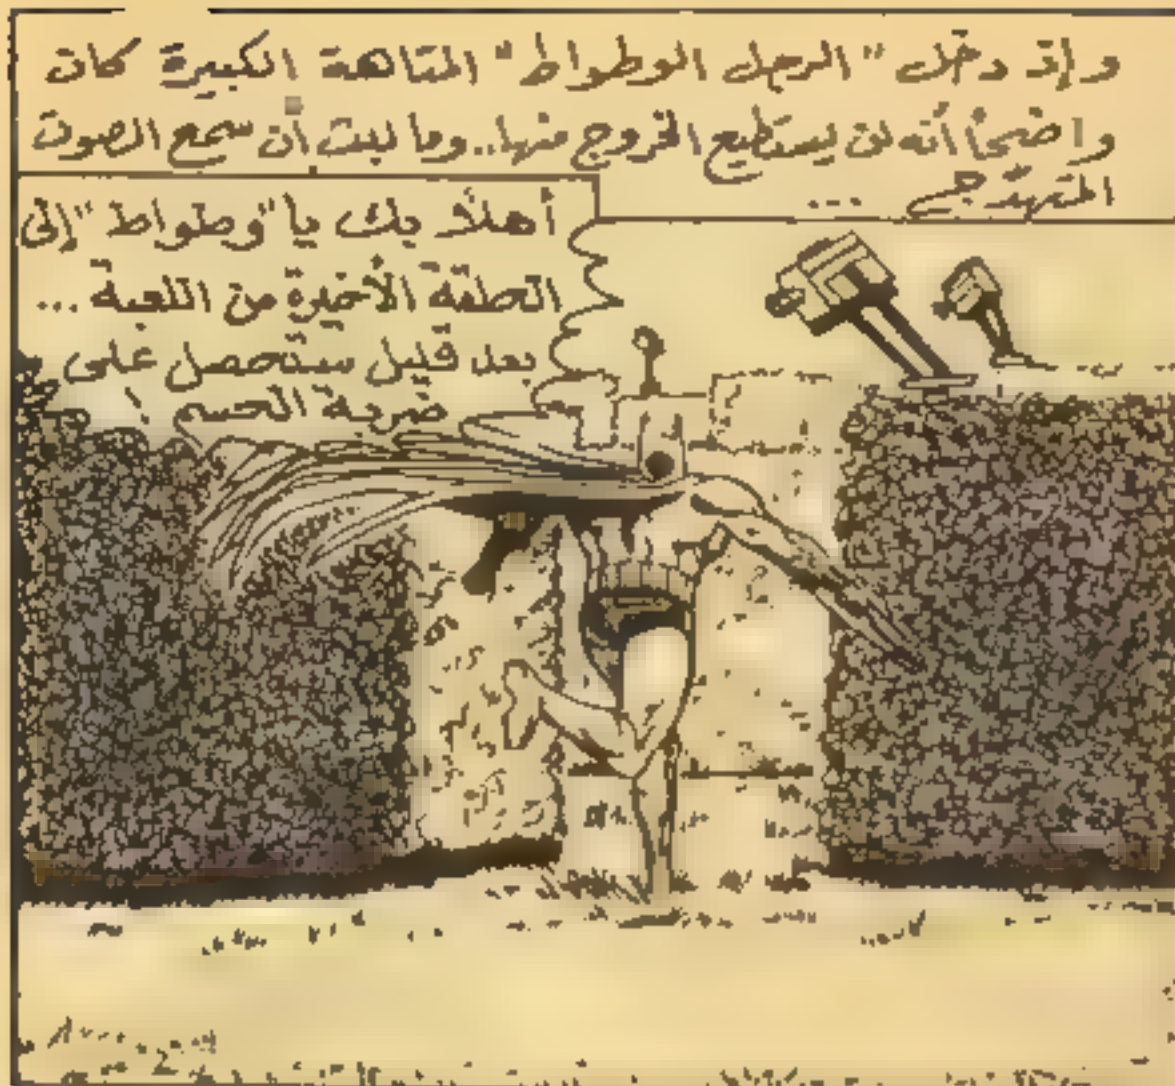 وإذ دخل "الرجل الوطواط" المتاهة الكبيرة كان
واضحاً أنه لن يستطيع الخروج منها.. وما لبث أن سمع الصوت
المتهدّج ...
أهلاً بك يا "وطواط" إلى
الحلبة الأخيرة من اللعبة ...
بعد قليل ستحصل على
ضربة الحسم !